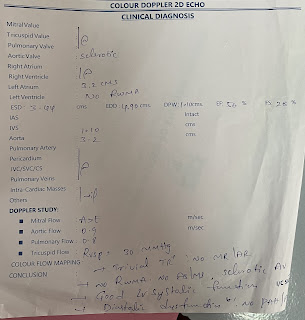 COLOUR DOPPLER 2D ECHO
CLINICAL DIAGNOSIS
Mitral Value
Tricuspid Value
Pulmonary Valve
Aortic Valve : sclerotic
Right Atrium
Right Ventricle
Left Atrium 3.2 cms
Left Ventricle NO RWMA
ESD cms EDD 4.90 cms DPW 1.10 cms EF 56 % 28 %
IAS Intact
IVS 1.10 cms
Aorta 3.2 cms
Pulmonary Artery
Pericardium
IVC/SVC/CS
Pulmonary Veins
Intra-Cardiac Masses
Others
DOPPLER STUDY:
Mitral Flow A>E m/sec
Aortic Flow 0.9 m/sec
Pulmonary Flow 0.8
Tricuspid Flow RVSP 30 mmHg
COLOUR FLOW MAPPING → Trivial TR NO MR/AR
CONCLUSION → NO RWMA NO sclerotic AV
→ Good LV systolic function
→ Diastolic dysfunction NO PAH